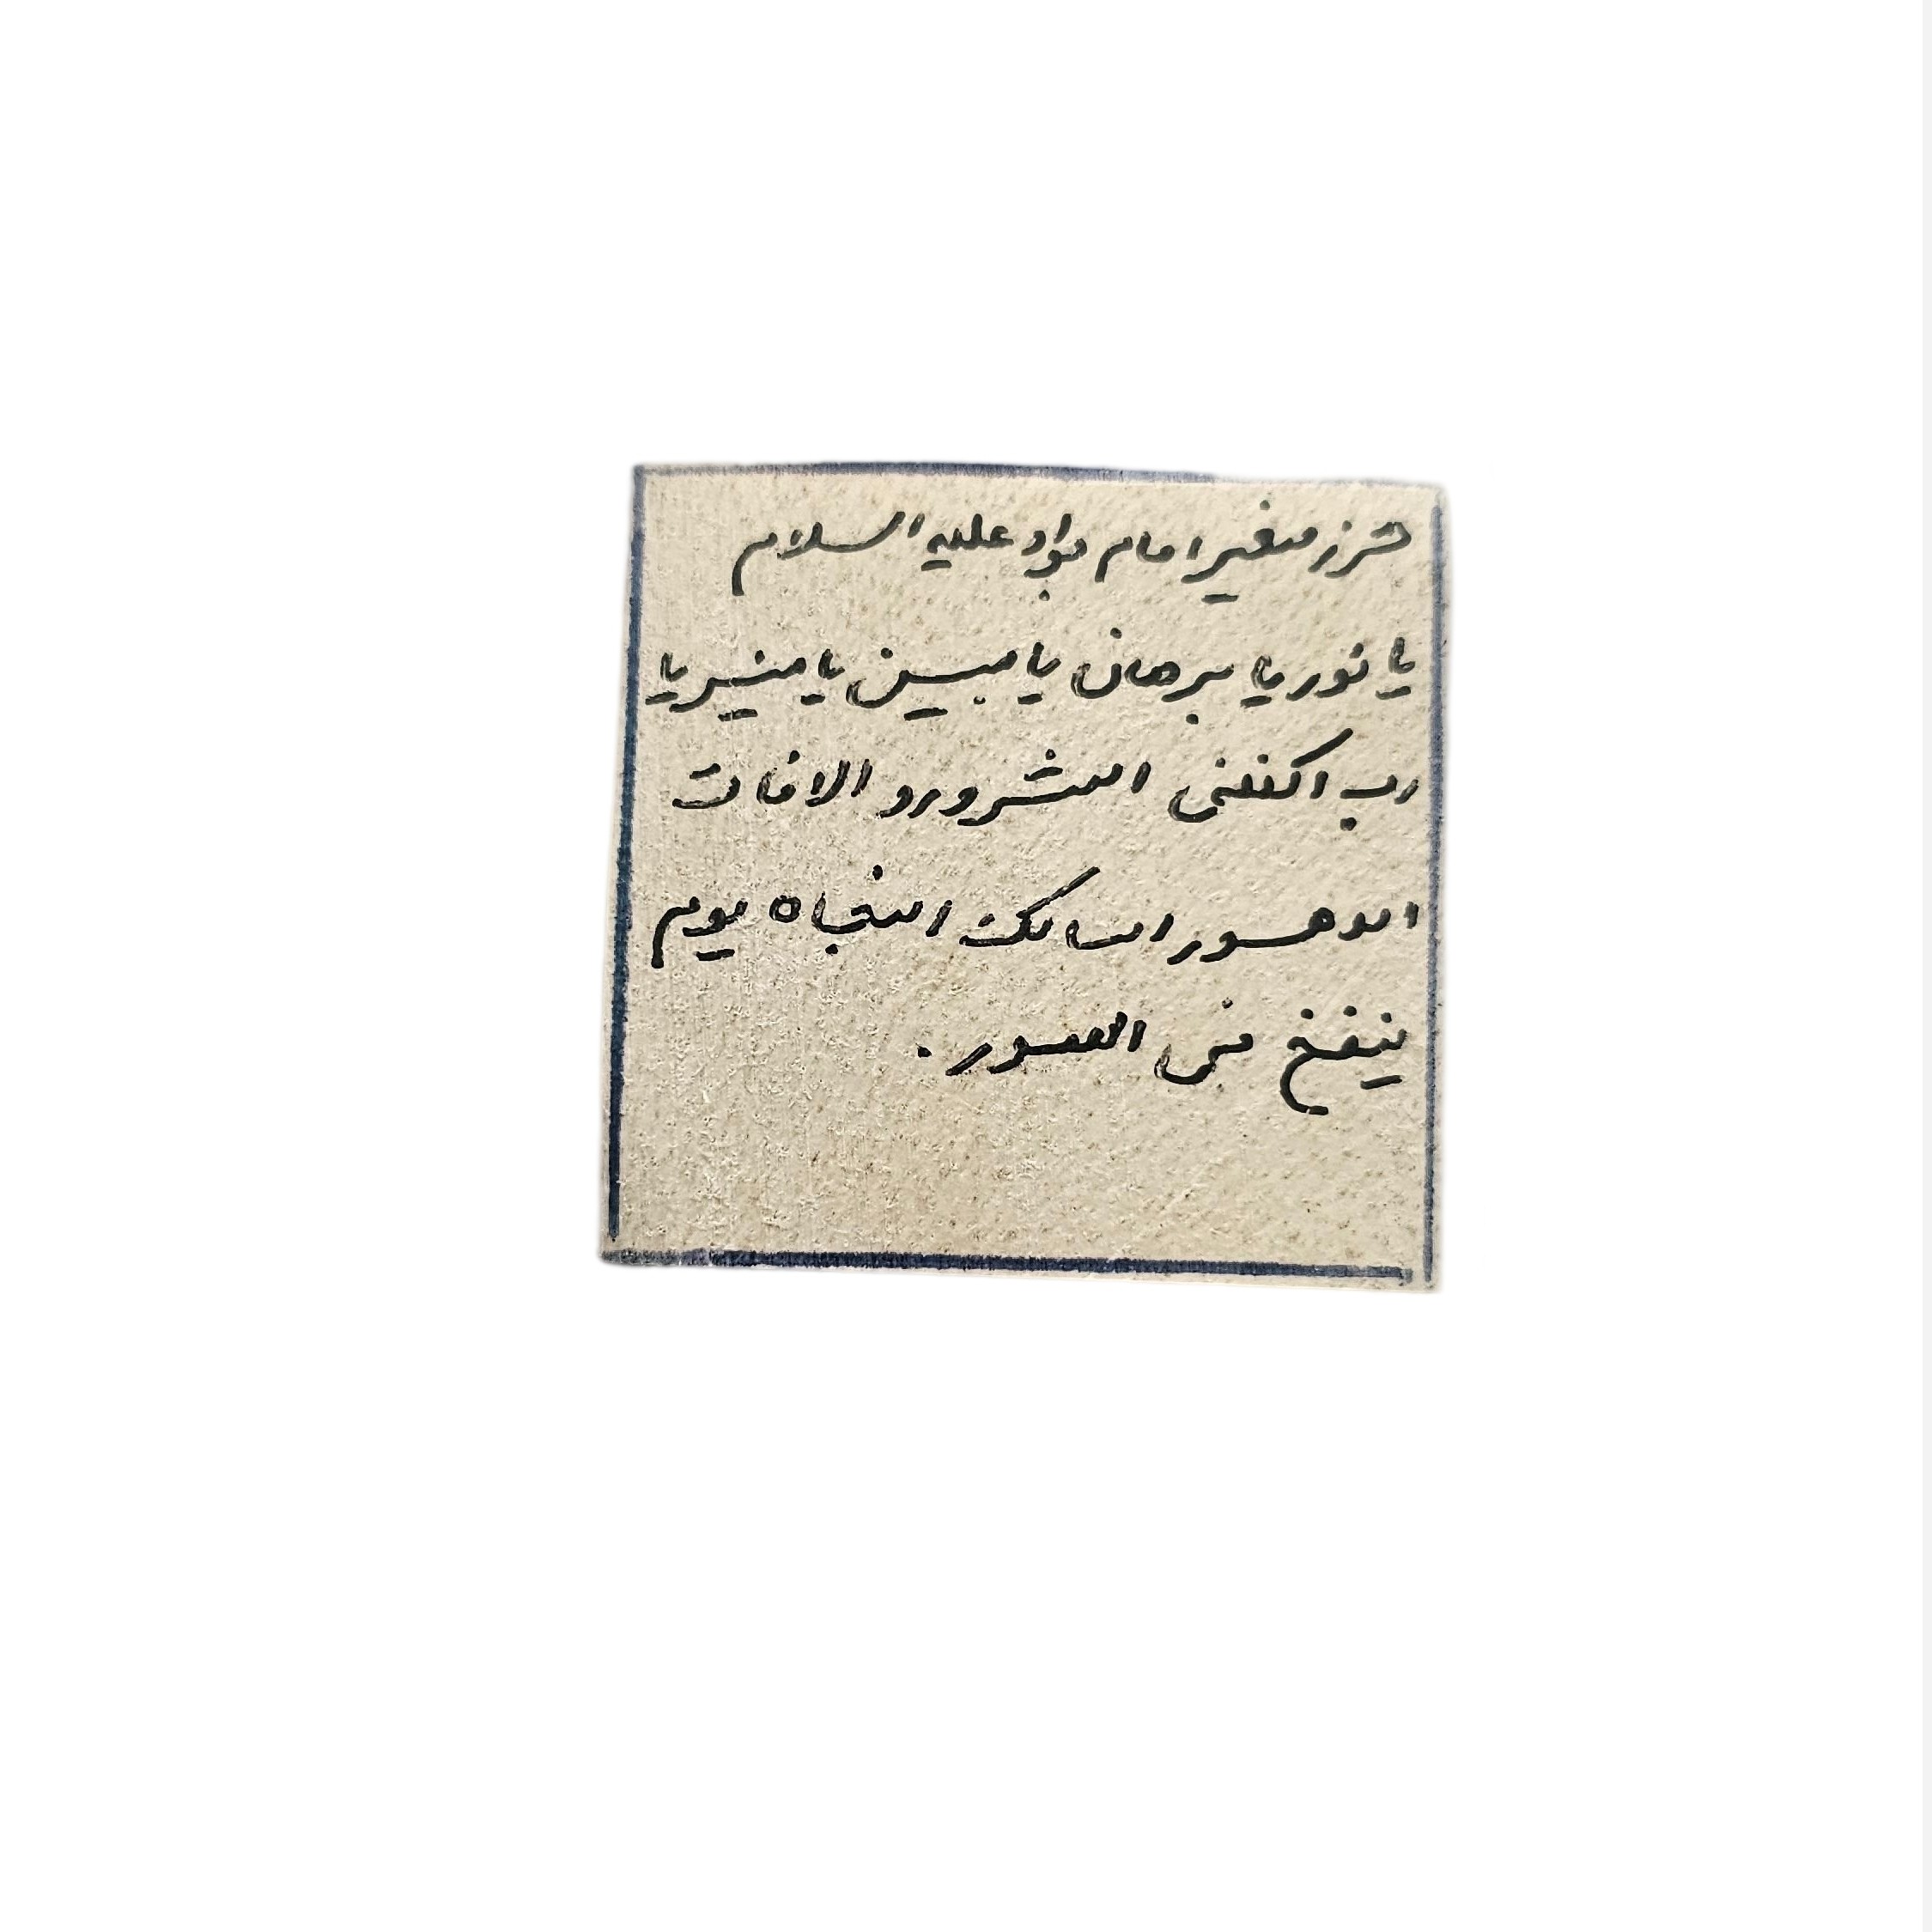 حرز صغیر امام جواد علیه السلام
یا نور یا برهان یا مبین یا منیر یا
رب اکفنی الشرور و الافات
الدهور اسالک النجاه یوم
ینفخ فی الصور.